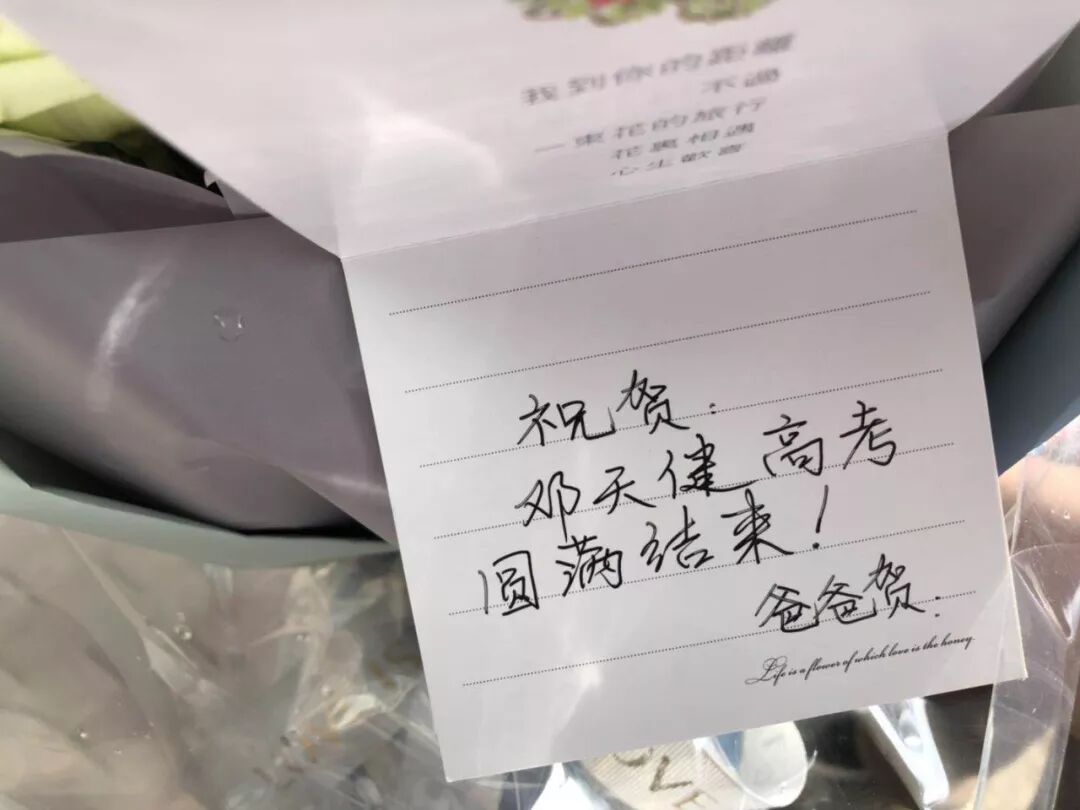 我到你的距離
不過
一束花的旅行
花裏相遇
心生歡喜
祝贺:
邓天健高考
圆满结束!
爸爸贺:
Life is a flower of which love is the honey